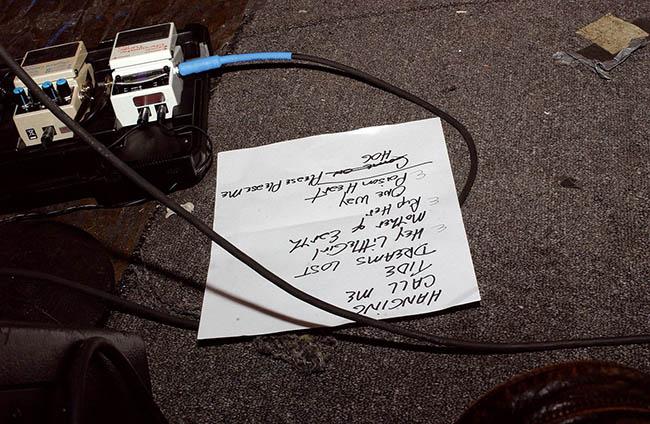 HANGING
CALL ME
TIDE
DREAMS LOST
HEY LITTLE GIRL
E MOTHER of EARTH
E Rip Her
One Way
E Poison Heart
Come on Please Please Me